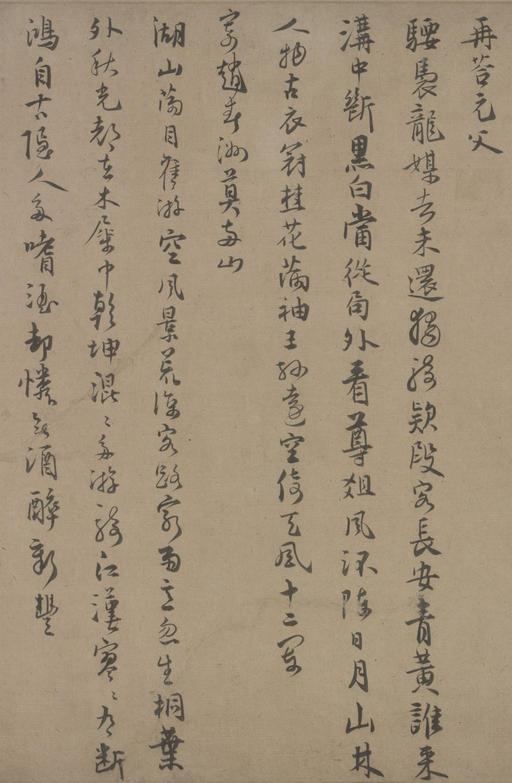 再荅元父
騕褭龍媒去未還獨騎欵段客長安青黃誰采
溝中斷黑白當從局外看尊俎風流陪日月山林
人物古衣冠桂花滿袖王孫遠空倚天風十二闌
寄趙春洲莫兩山
湖山滿目舊游空風景荒涼客路窮雨意忽生桐葉
外秋光都在木犀中乾坤混〻多游騎江漢寥〻有斷
鴻自古隱人多嗜酒却憐無酒醉新豐